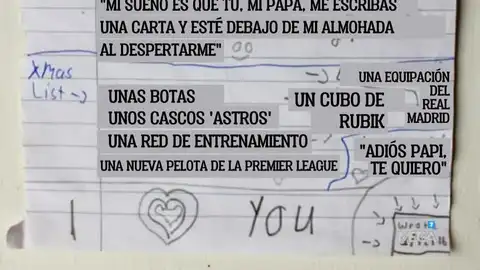 "MI SUEÑO ES QUE TÚ, MI PAPÁ, ME ESCRIBAS
UNA CARTA Y ESTÉ DEBAJO DE MI ALMOHADA
AL DESPERTARME"
XMas
List
UNAS BOTAS
UNOS CASCOS 'ASTROS'
UNA RED DE ENTRENAMIENTO
UNA NUEVA PELOTA DE LA PREMIER LEAGUE
UN CUBO DE
RUBIK
UNA EQUIPACIÓN
DEL
REAL
MADRID
"ADIÓS PAPI,
TE QUIERO"
I YOU